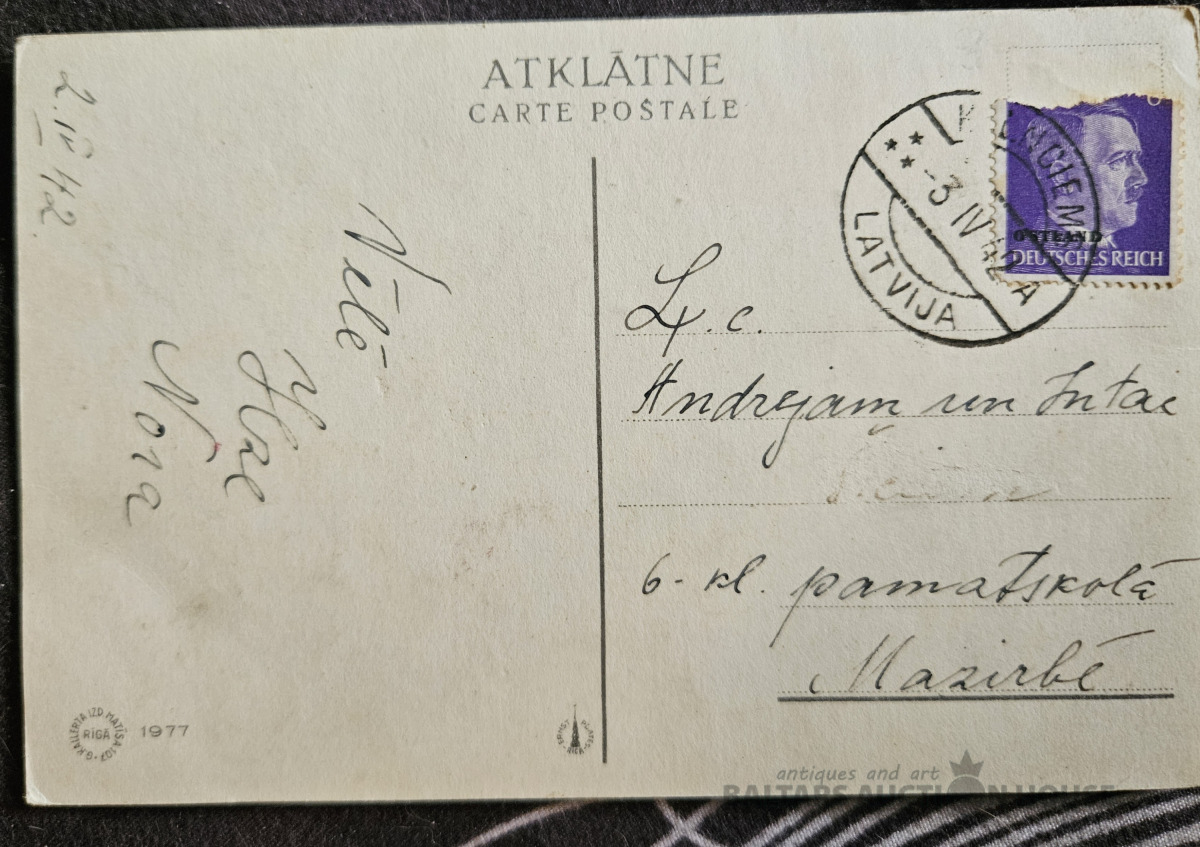 ATKLĀTNE
CARTE POSTALE
2. IV 42.
Vēlē
Ilze
Nora
K
CIEM
-3 IV 42 A
LATVIJA
OSTLAND
DEUTSCHES REICH
Lx. c.
Andrejam un Intai
6-kl. pamatskolā
Mazirbē
G. KAILERTA IZD. MATĪSA
RĪGĀ
1977
ERNST PLATES
antiques and art
BALTARS AUCTION HOUSE